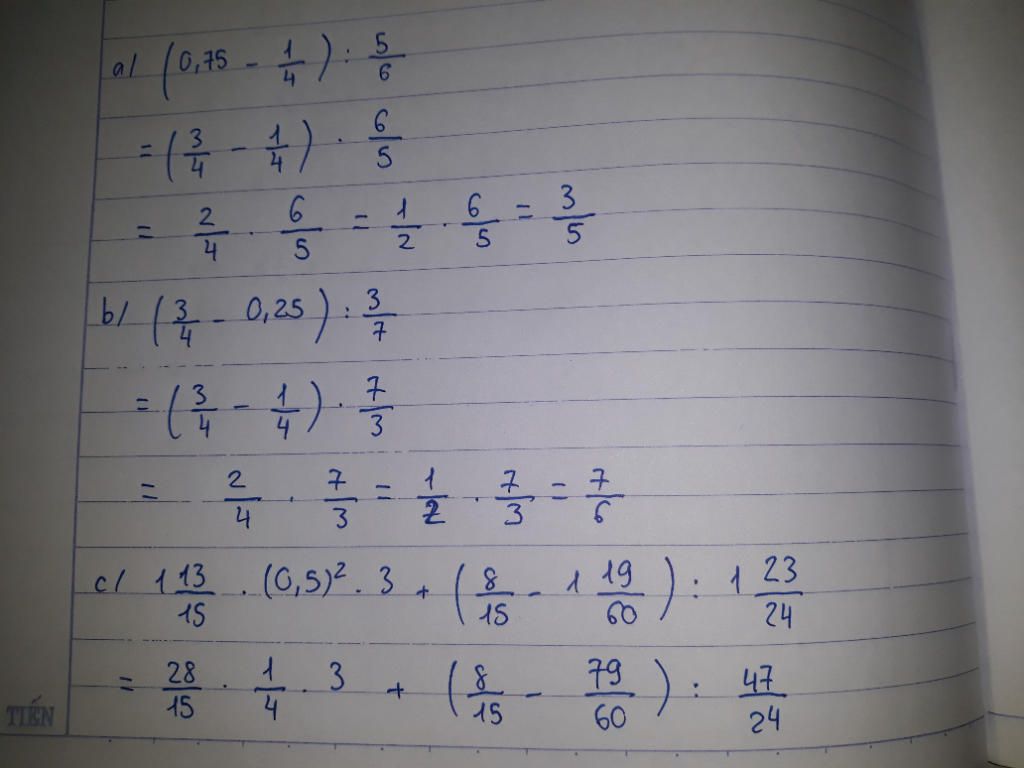 a/ (0,75 - 1/4) : 5/6
= (3/4 - 1/4) . 6/5
= 2/4 . 6/5 = 1/2 . 6/5 = 3/5
b/ (3/4 - 0,25) : 3/7
= (3/4 - 1/4) . 7/3
= 2/4 . 7/3 = 1/2 . 7/3 = 7/6
c/ 1 13/15 . (0,5)² . 3 + (8/15 - 1 19/60) : 1 23/24
= 28/15 . 1/4 . 3 + (8/15 - 79/60) : 47/24
TIẾN